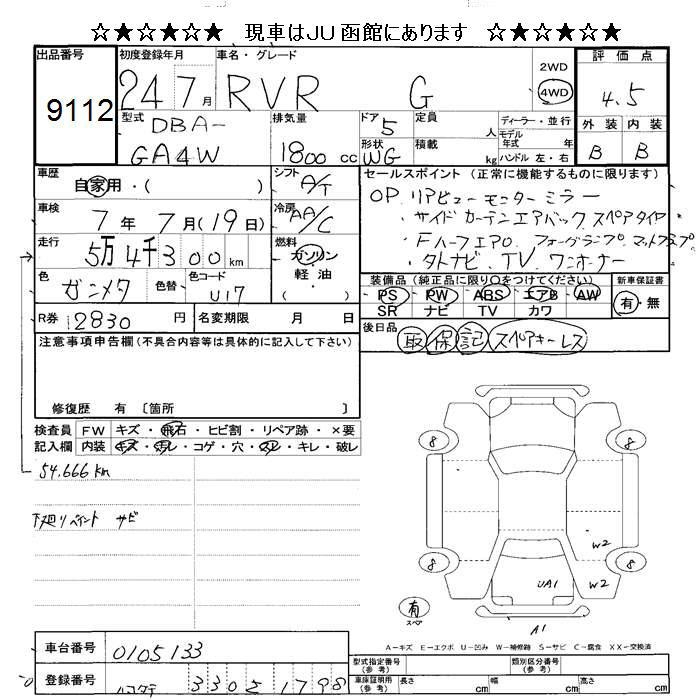 ☆★☆★☆★ 現車はJU函館にあります ☆★☆★☆★
出品番号 9112
初度登録年月 24 7月
車名・グレード RVR G
2WD 4WD
評価点 4.5
外装 内装
B B
型式 DBA-
GA4W
排気量 1800 cc
ドア 5
形状 WG
定員 人
積載 kg
ディーラー・並行
モデル年式 年
ハンドル 左・右
車歴 自家用・( )
シフト A/T
車検 7年 7月(19日)
冷房 AA/C
走行 5万4千300km
燃料 ガソリン
軽油
( )
色 ガンメタ
色替
色コード U17
R券 12830 円
名変期限 月 日
セールスポイント (正常に機能するものに限ります)
OP.リアビューモニターミラー
・サイドカーテンエアバック スペアタイヤ
・Fハーフエアロ フォーグランプ フットランプ
・タトナビ.TV.ワンオーナー
装備品 (純正品に限り○をつけてください)
PS PW ABS エアB AW
SR ナビ TV カワ
新車保証書
有・無
後日品 取 保 記 スペアキーレス
注意事項申告欄(不具合内容等は具体的に記入して下さい)
修復歴 有 〔箇所 〕
検査員記入欄
FW キズ・飛石・ヒビ割・リペア跡・×要
内装 キズ・汚レ・コゲ・穴・スレ・キレ・破レ
54,666km
下廻りペイント サビ
8 8
8 8
W2
W2
UA1
A1
有
スペア
A-キズ E-エクボ U-凹み W-補修跡 S-サビ C-腐食 XX-交換済
車台番号 0105133
登録番号 ハコダテ 330 ち 1798
型式指定番号(参考)
類別区分番号(参考)
車体証明書(参考) 長さ cm 幅 cm 高さ cm